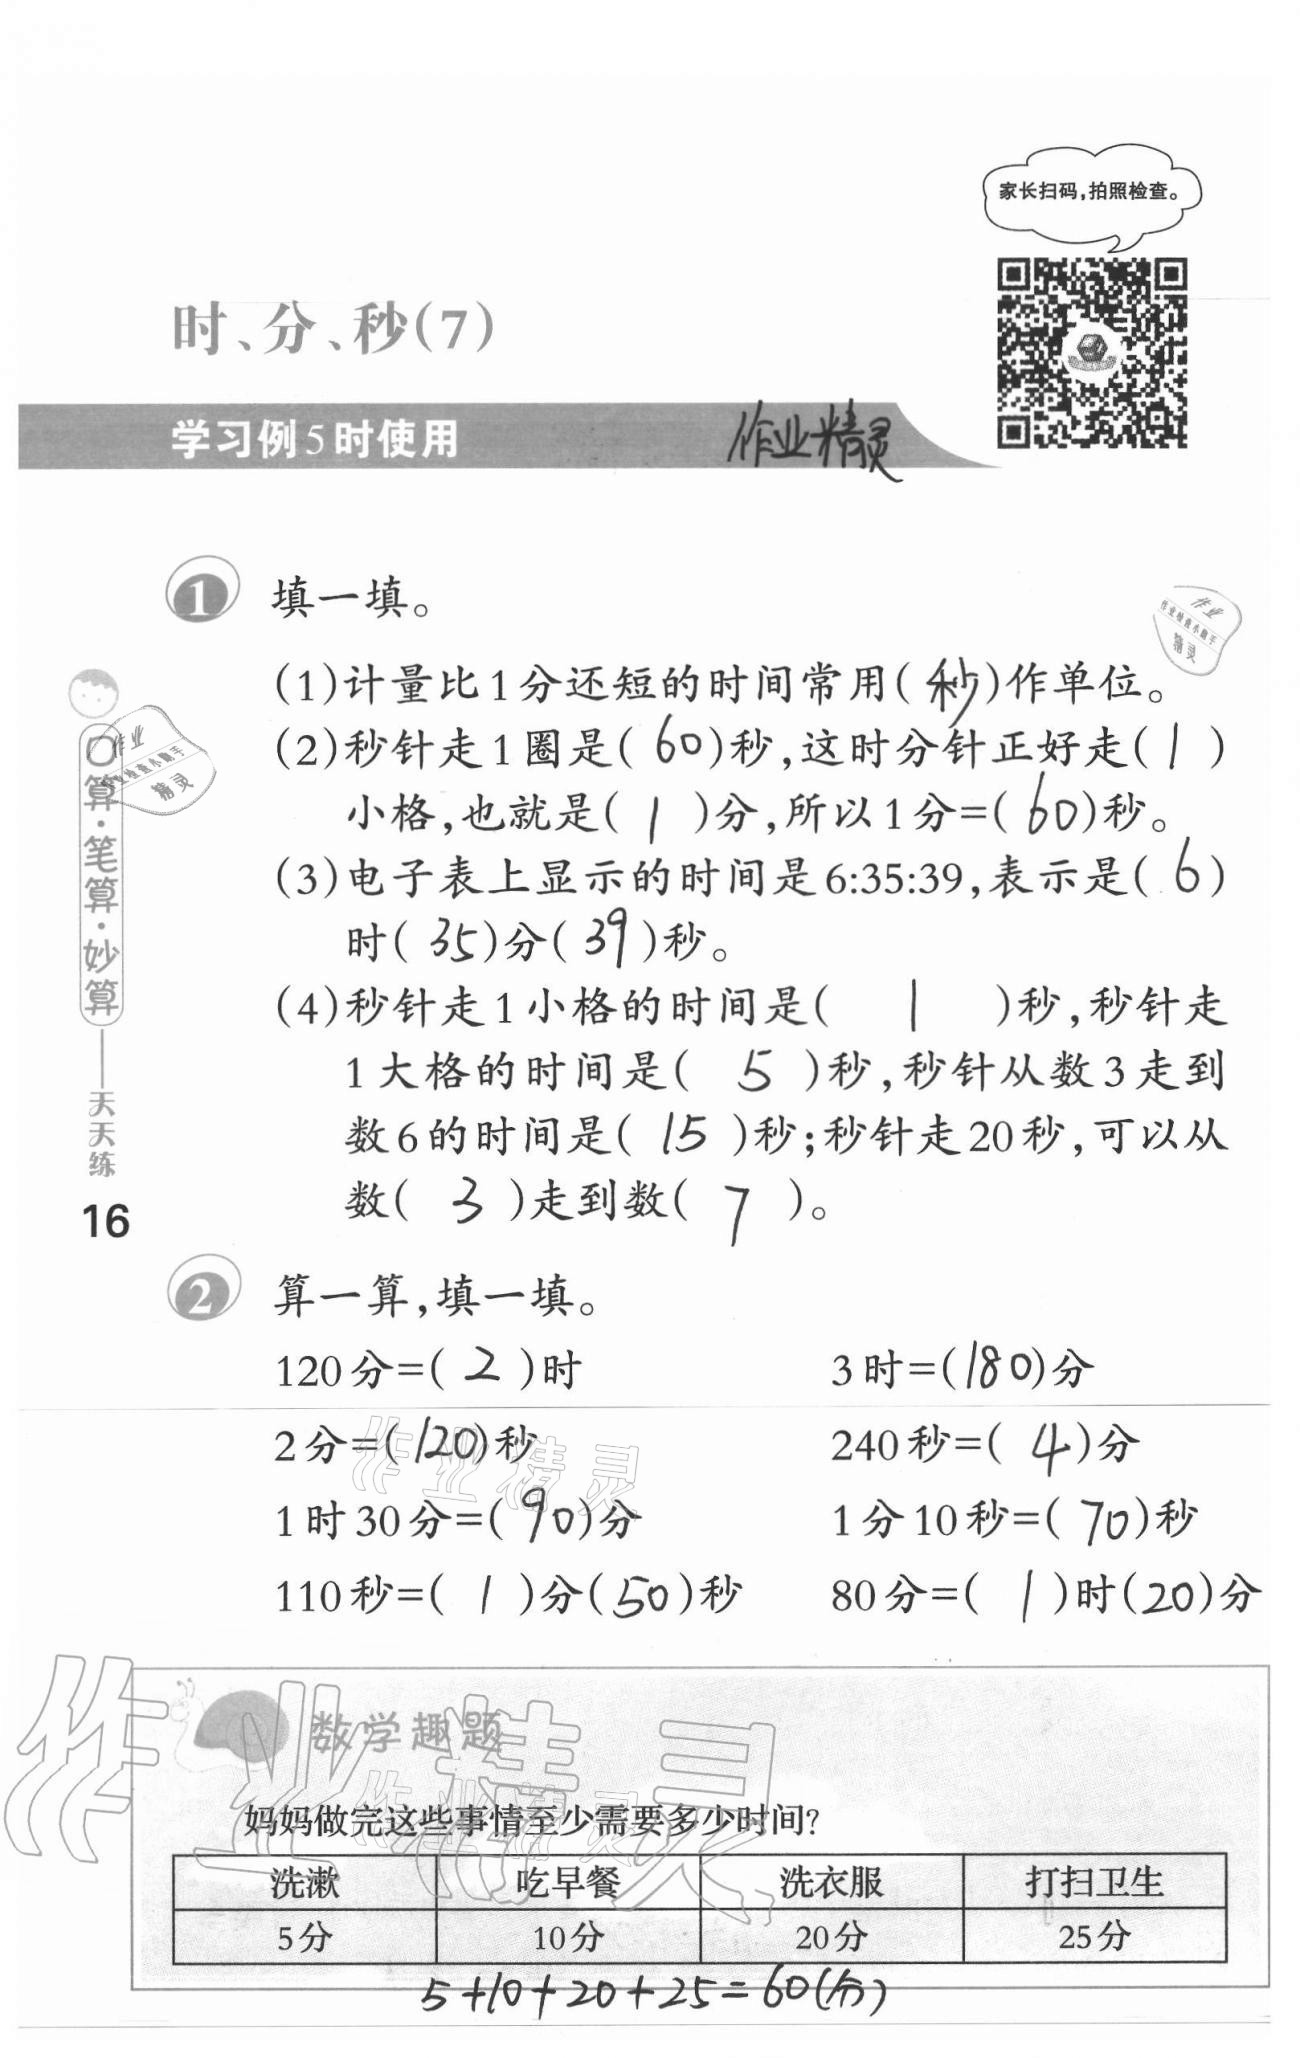 家长扫码,拍照检查。
时、分、秒(7)
学习例5时使用
作业精灵
1 填一填。
作业
作业检查小助手
精灵
(1)计量比1分还短的时间常用(秒)作单位。
(2)秒针走1圈是(60)秒,这时分针正好走(1)
小格,也就是(1)分,所以1分=(60)秒。
(3)电子表上显示的时间是6:35:39,表示是(6)
时(35)分(39)秒。
(4)秒针走1小格的时间是(1)秒,秒针走
1大格的时间是(5)秒,秒针从数3走到
数6的时间是(15)秒;秒针走20秒,可以从
数(3)走到数(7)。
作业
作业检查小助手
精灵
口算·笔算·妙算——天天练
16
2 算一算,填一填。
120分=(2)时 3时=(180)分
2分=(120)秒 240秒=(4)分
1时30分=(90)分 1分10秒=(70)秒
110秒=(1)分(50)秒 80分=(1)时(20)分
作业精灵
作业精灵
数学趣题
作业精灵
妈妈做完这些事情至少需要多少时间?
洗漱 吃早餐 洗衣服 打扫卫生
5分 10分 20分 25分
5+10+20+25=60(分)